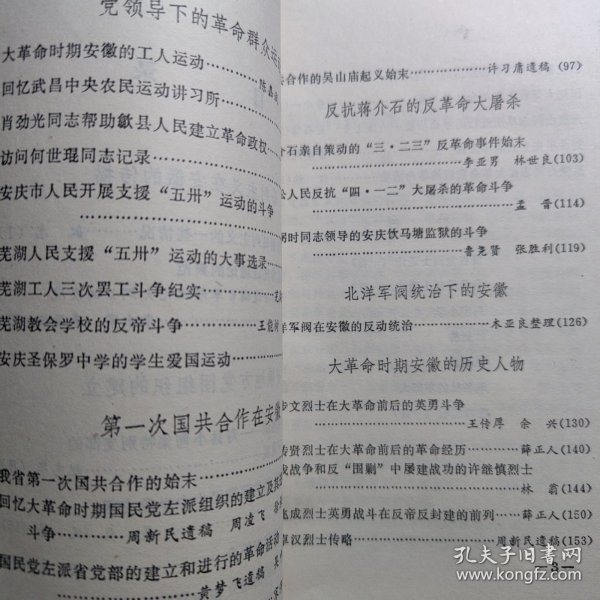 党领导下的革命群众
大革命时期安徽的工人运动……
回忆武昌中央农民运动讲习所……
肖劲光同志帮助歙县人民建立革命政权……
访问何世琨同志记录……
安庆市人民开展支援“五卅”运动的斗争
……
芜湖人民支援“五卅”运动的大事选录……
芜湖工人三次罢工斗争纪实……
芜湖教会学校的反帝斗争……王能
安庆圣保罗中学的学生爱国运动……
第一次国共合作在安徽
我省第一次国共合作的始末……
回忆大革命时期国民党左派组织的建立及
斗争……周新民遗稿 周凌飞
国民党左派省党部的建立和进行的革命
……黄梦飞遗稿
合作的吴山庙起义始末……许习庸遗稿(97)
反抗蒋介石的反革命大屠杀
介石亲自策动的“三·二三”反革命事件始末
……李亚男 林世良(103)
人民反抗“四·一二”大屠杀的革命斗争
……孟晋(114)
时同志领导的安庆饮马塘监狱的斗争
……鲁尧贤 张胜利(119)
北洋军阀统治下的安徽
军阀在安徽的反动统治……木亚良整理(126)
大革命时期安徽的历史人物
步文烈士在大革命前后的英勇斗争
……王传厚 余兴(130)
传贤烈士在大革命前后的革命经历……薛正人(140)
战争和反“围剿”中屡建战功的许继慎烈士
……林翁(144)
兆成烈士英勇战斗在反帝反封建的前列……薛正人(150)
卓汉烈士传略……周新民遗稿(153)
—3—
孔夫子旧书网
www.kongfz.com